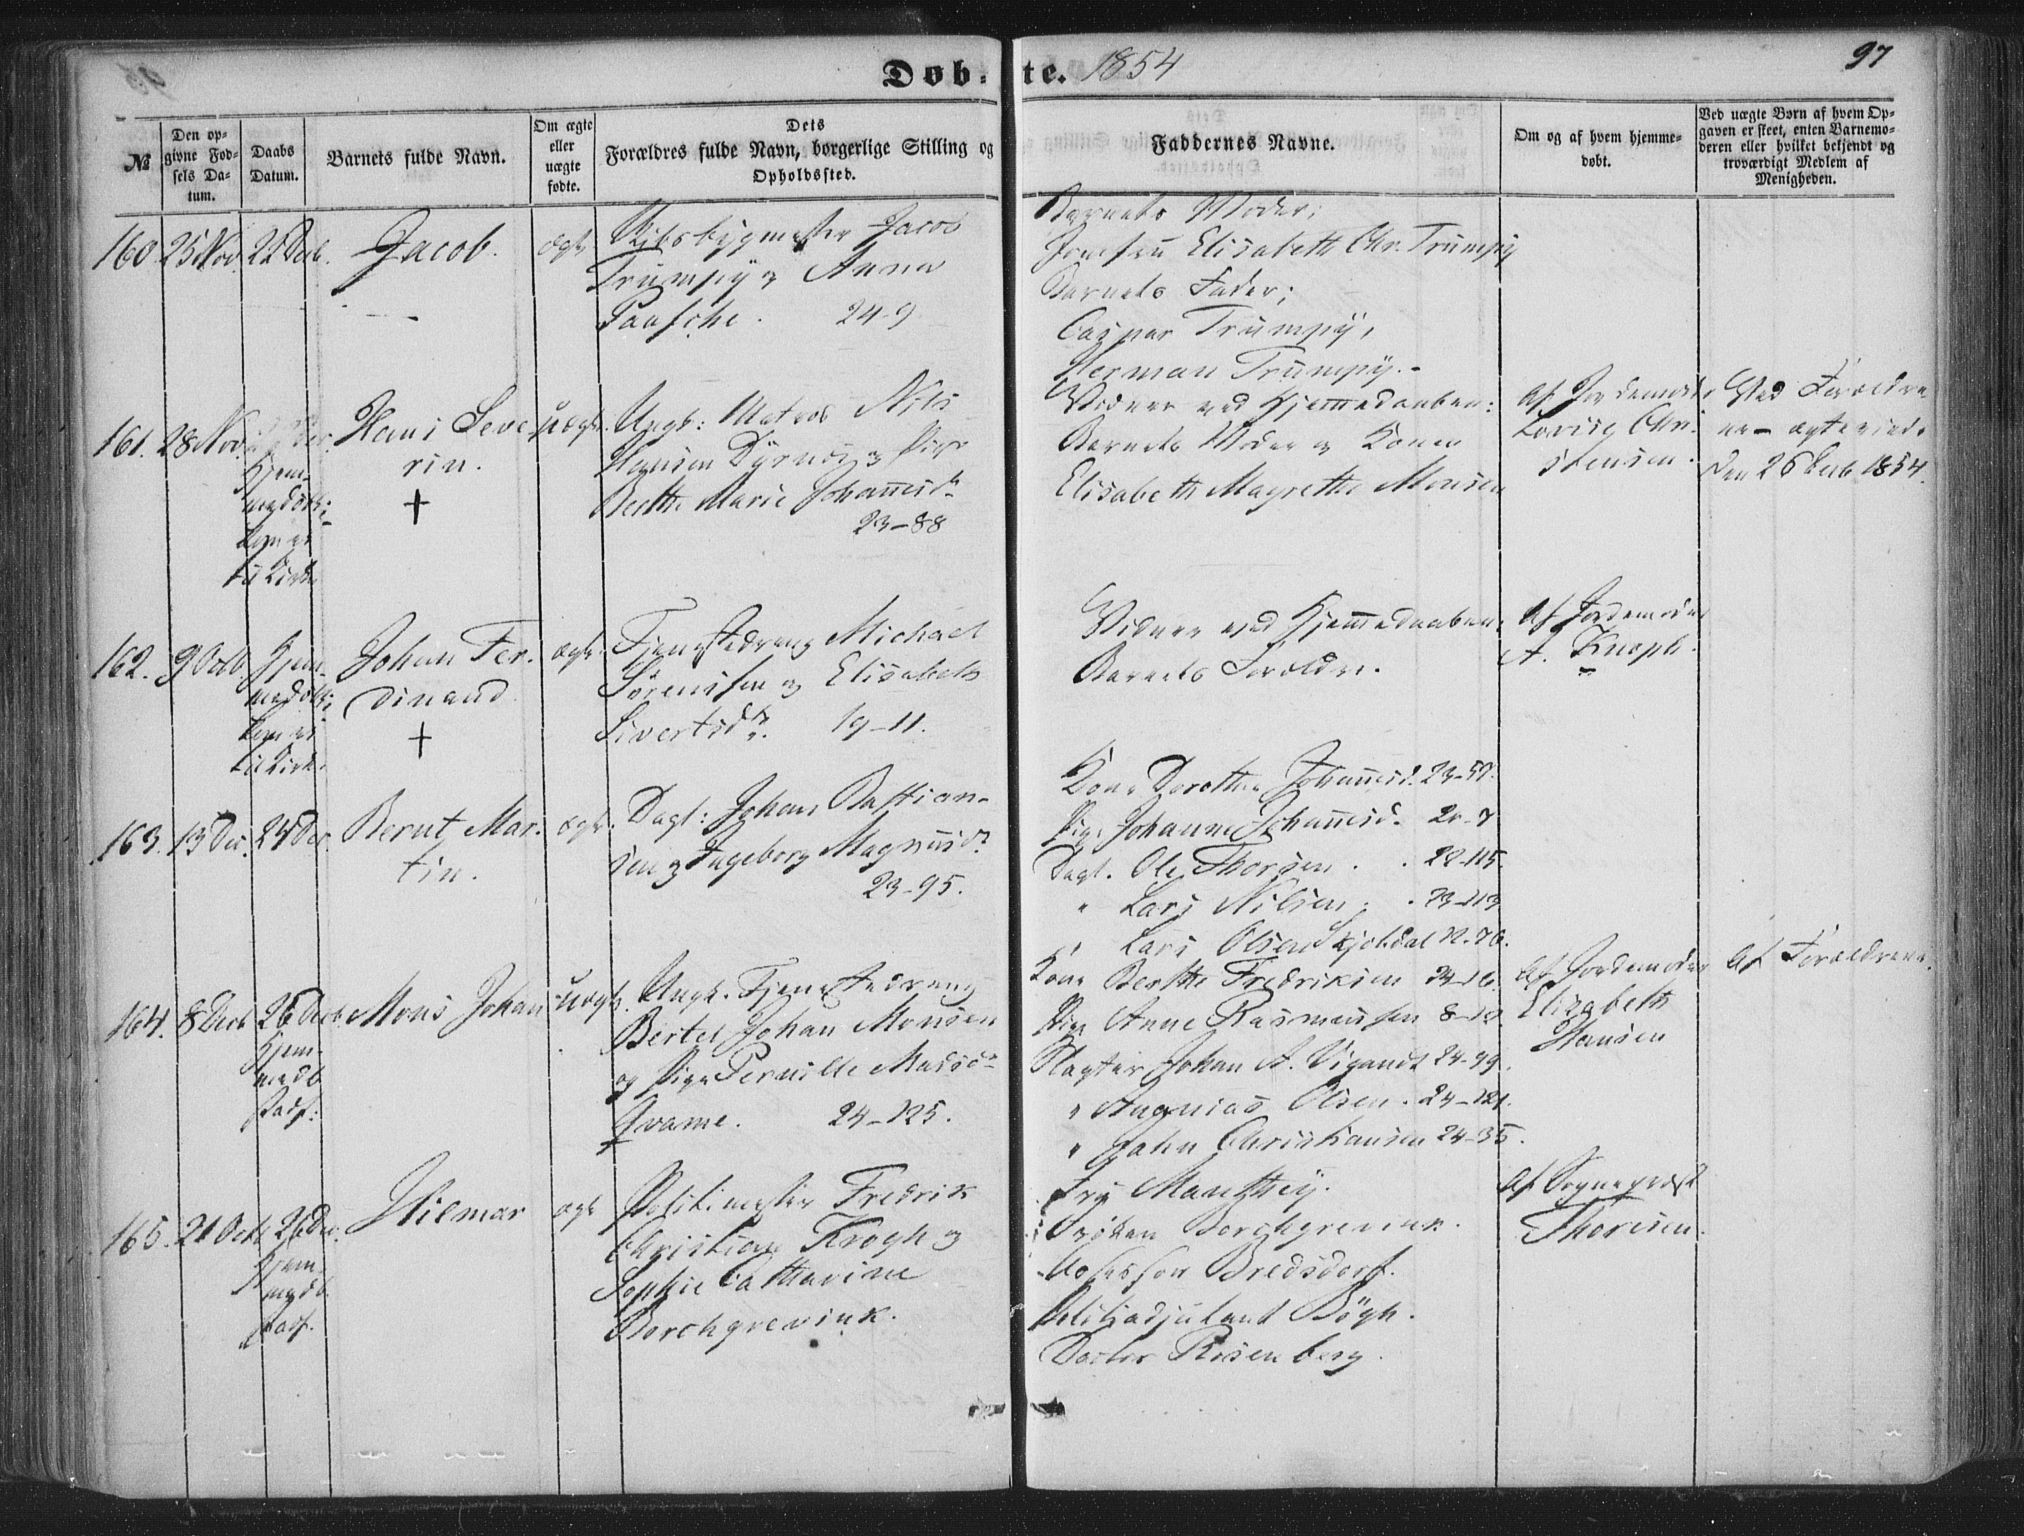 Døb-te. 1854
97
№
Den op-
givne Fød-
sels Da-
tum.
Daabs
Datum.
Barnets fulde Navn.
Om ægte
eller
uægte
fødte.
Dets
Forældres fulde Navn, borgerlige Stilling og
Opholdssted.
Faddernes Navne.
Om og af hvem hjemme-
døbt.
Ved uægte Børn af hvem Op-
gaven er skeet, enten Barnemo-
deren eller hvilket bekjendt og
troværdigt Medlem af
Menigheden.
160. 25 Nov. 25 Decb. Jacob. ægte
Skibsbygmester Jacob
Trumpÿ & Anna
Paasche. 24-9
Barnets Moder;
Jomfru Elisabeth Chr. Trumpÿ
Barnets Fader;
Caspar Trumpÿ,
Herman Trumpÿ.
161. 28 Nov.
Hjem-
medøbt;
kom ei
til Kirke
Hans Seve-
rin.
uægte.
Ungk: Matros Nils
Hansen Dÿrnes og Pige
Berthe Marie Johannesdr
23-88
Vidner ved Hjemmedaaben:
Barnets Moder og Konen
Elisabeth Magrethe Monsen
Af Jordemoder
Lovise Chri-
stensen.
Ved Forældre
ne - ægteviede
den 26 Decb 1854.
162. 9 Octb
Hjem-
medøbt;
kom ei
til Kirke.
Johan Fer-
dinand
ægte.
Tjenestedreng Michael
Sørensen og Elisabeth
Sivertsdr. 19-11.
Vidner ved Hjemmedaaben,
Barnets Forældre.
Af Jordemoder
A. Knoph.
163. 13 Dec. 25 Dec. Bernt Mar-
tin.
ægte.
Dagl: Johan Bastian-
sen og Ingeborg Magnusdr
23-95.
Kone Dorothea Johannesd. 23-57.
Pige Johanne Johannesd. 20-7
Dagl. Ole Thorsen . . 22-115.
" Lars Nilsen . . 23-113
" Lars Olsen Skjoldal 12-76.
164. 8 Decb 26 Decb
Hjem-
medb
Stadf:
Mons Johan
uægte.
Ungk. Tjenestedreng
Bertel Johan Monsen
og Pige Pernille Madsdr
Qvame. 24-125.
Kone Berthe Fredriksen 24-16.
Pige Anne Rasmussen 8-12.
Slagter Johan A. Vigandt 24-99.
" Ananias Olsen . 24-121.
" John Christiansen 24-35.
Af Jordemoder
Elizabeth
Hansen
Af Forældrene.
165. 21 Octb 26 Dec.
Hjem-
medb.
Stadf.
Hilmar ægte
Politimester Fredrik
Christian Krogh og
Sophie Catharine
Borchgrevink.
Fru Manthey.
Frøken Borchgrevink.
Assessor Bredsdorf.
Politiadjutant Bøgh.
Doctor Rosenberg.
Af Sognepræst
Thoresen.